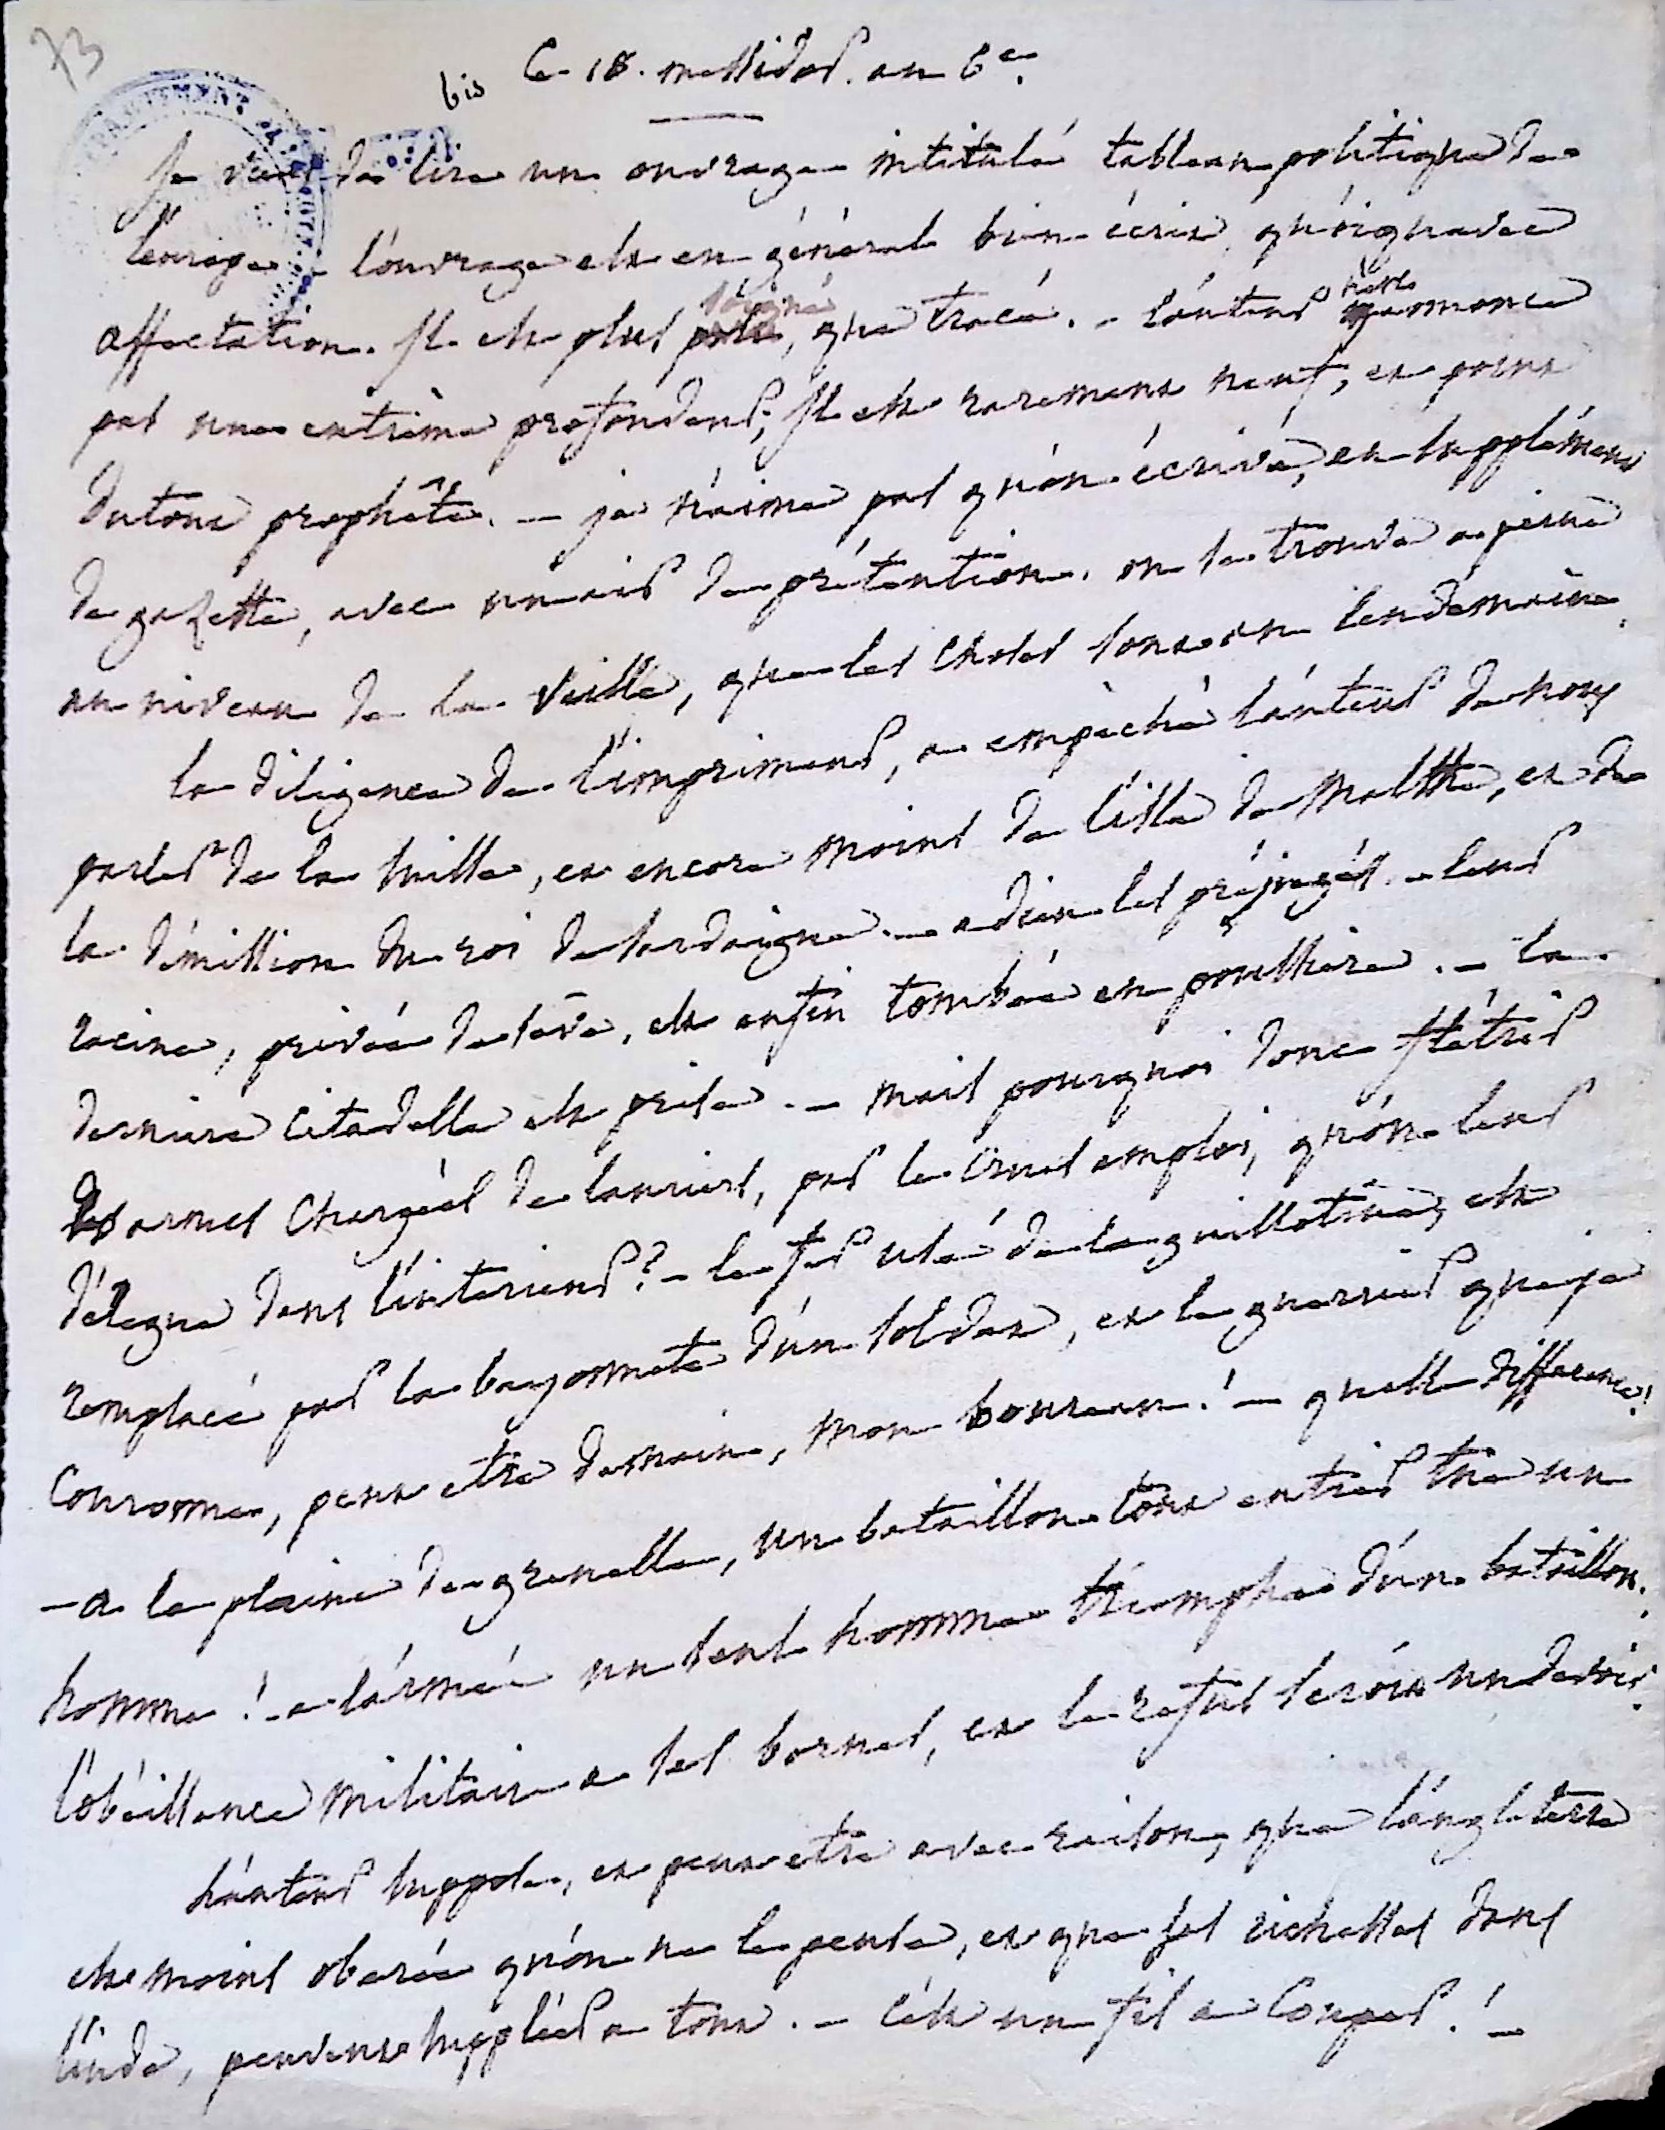 73
bis Ce 18. messidor. an 6e.
je viens de lire un ouvrage intitulé tableau politique de
l'europe. l'ouvrage est en général bien écrit, quoiqu'avec
affectation. Il est plus soigné, que tracé. - l'auteur n'est
pas une extrême profondeur; Il est rarement neuf, et point
du tout prophête. - je n'aime pas qu'on écrive, en supplément
de gazette, avec un air de prétention. on se trouve a peine
au niveau de la veille, que les choses sont au lendemain.
la diligence de l'imprimeur, a empêché l'auteur de nous
parler de la suisse, et encore moins de l'isle de Malthe, et de
la démission du roi de sardaigne. - adieu les préjugés. - leur
racine, privée de sève, est enfin tombée en poussière. - la
derniere citadelle est prise. - mais pourquoi donc flétrir
des armes chargées de lauriers, par le cruel emploi, qu'on leur
délegue dans l'interieur? - le fer usé de la guillotine, est
remplacé par la bayonnete d'un soldat, et le guerrier que je
couronne, peut etre demain, mon boureau! - quelle difference!
- a la plaine de grenelle, un bataillon tout entier tue un
homme! - a l'armée un seul homme triomphe d'un bataillon.
l'obéissance militaire a ses bornes, et le refus seroit un devoir.
l'auteur suppose, et peut etre avec raison, que l'angleterre
est moins oberée qu'on ne le pense, et que ses richesses dans
l'inde, peuvent suppléer a tout. - c'est un fil a couper! -